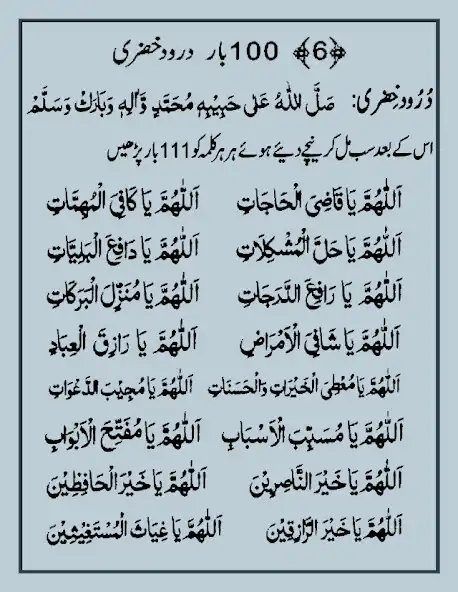 ﴿6﴾ 100 بار درود خضری
دُرُودِ خِضری: صَلَّی اللّٰهُ عَلٰی حَبِیْبِهٖ مُحَمَّدٍ وَّاٰلِهٖ وَبَارَكَ وَسَلَّمْ
اس کے بعد سب مل کر نیچے دیئے ہوئے ہر ہر کلمہ کو 111 بار پڑھیں
اَللّٰهُمَّ یَا قَاضِیَ الْحَاجَاتِ اَللّٰهُمَّ یَا كَافِیَ الْمُهِمَّاتِ
اَللّٰهُمَّ یَا حَلَّ الْمُشْكِلَاتِ اَللّٰهُمَّ یَا دَافِعَ الْبَلِیَّاتِ
اَللّٰهُمَّ یَا رَافِعَ الدَّرَجَاتِ اَللّٰهُمَّ یَا مُنَزِّلَ الْبَرَكَاتِ
اَللّٰهُمَّ یَا شَافِیَ الْاَمْرَاضِ اَللّٰهُمَّ یَا رَازِقَ الْعِبَادِ
اَللّٰهُمَّ یَا مُعْطِیَ الْخَیْرَاتِ وَالْحَسَنَاتِ اَللّٰهُمَّ یَا مُجِیْبَ الدَّعْوَاتِ
اَللّٰهُمَّ یَا مُسَبِّبَ الْاَسْبَابِ اَللّٰهُمَّ یَا مُفَتِّحَ الْاَبْوَابِ
اَللّٰهُمَّ یَا خَیْرَ النَّاصِرِیْنَ اَللّٰهُمَّ یَا خَیْرَ الْحَافِظِیْنَ
اَللّٰهُمَّ یَا خَیْرَ الرَّازِقِیْنَ اَللّٰهُمَّ یَا غِیَاثَ الْمُسْتَغِیْثِیْنَ